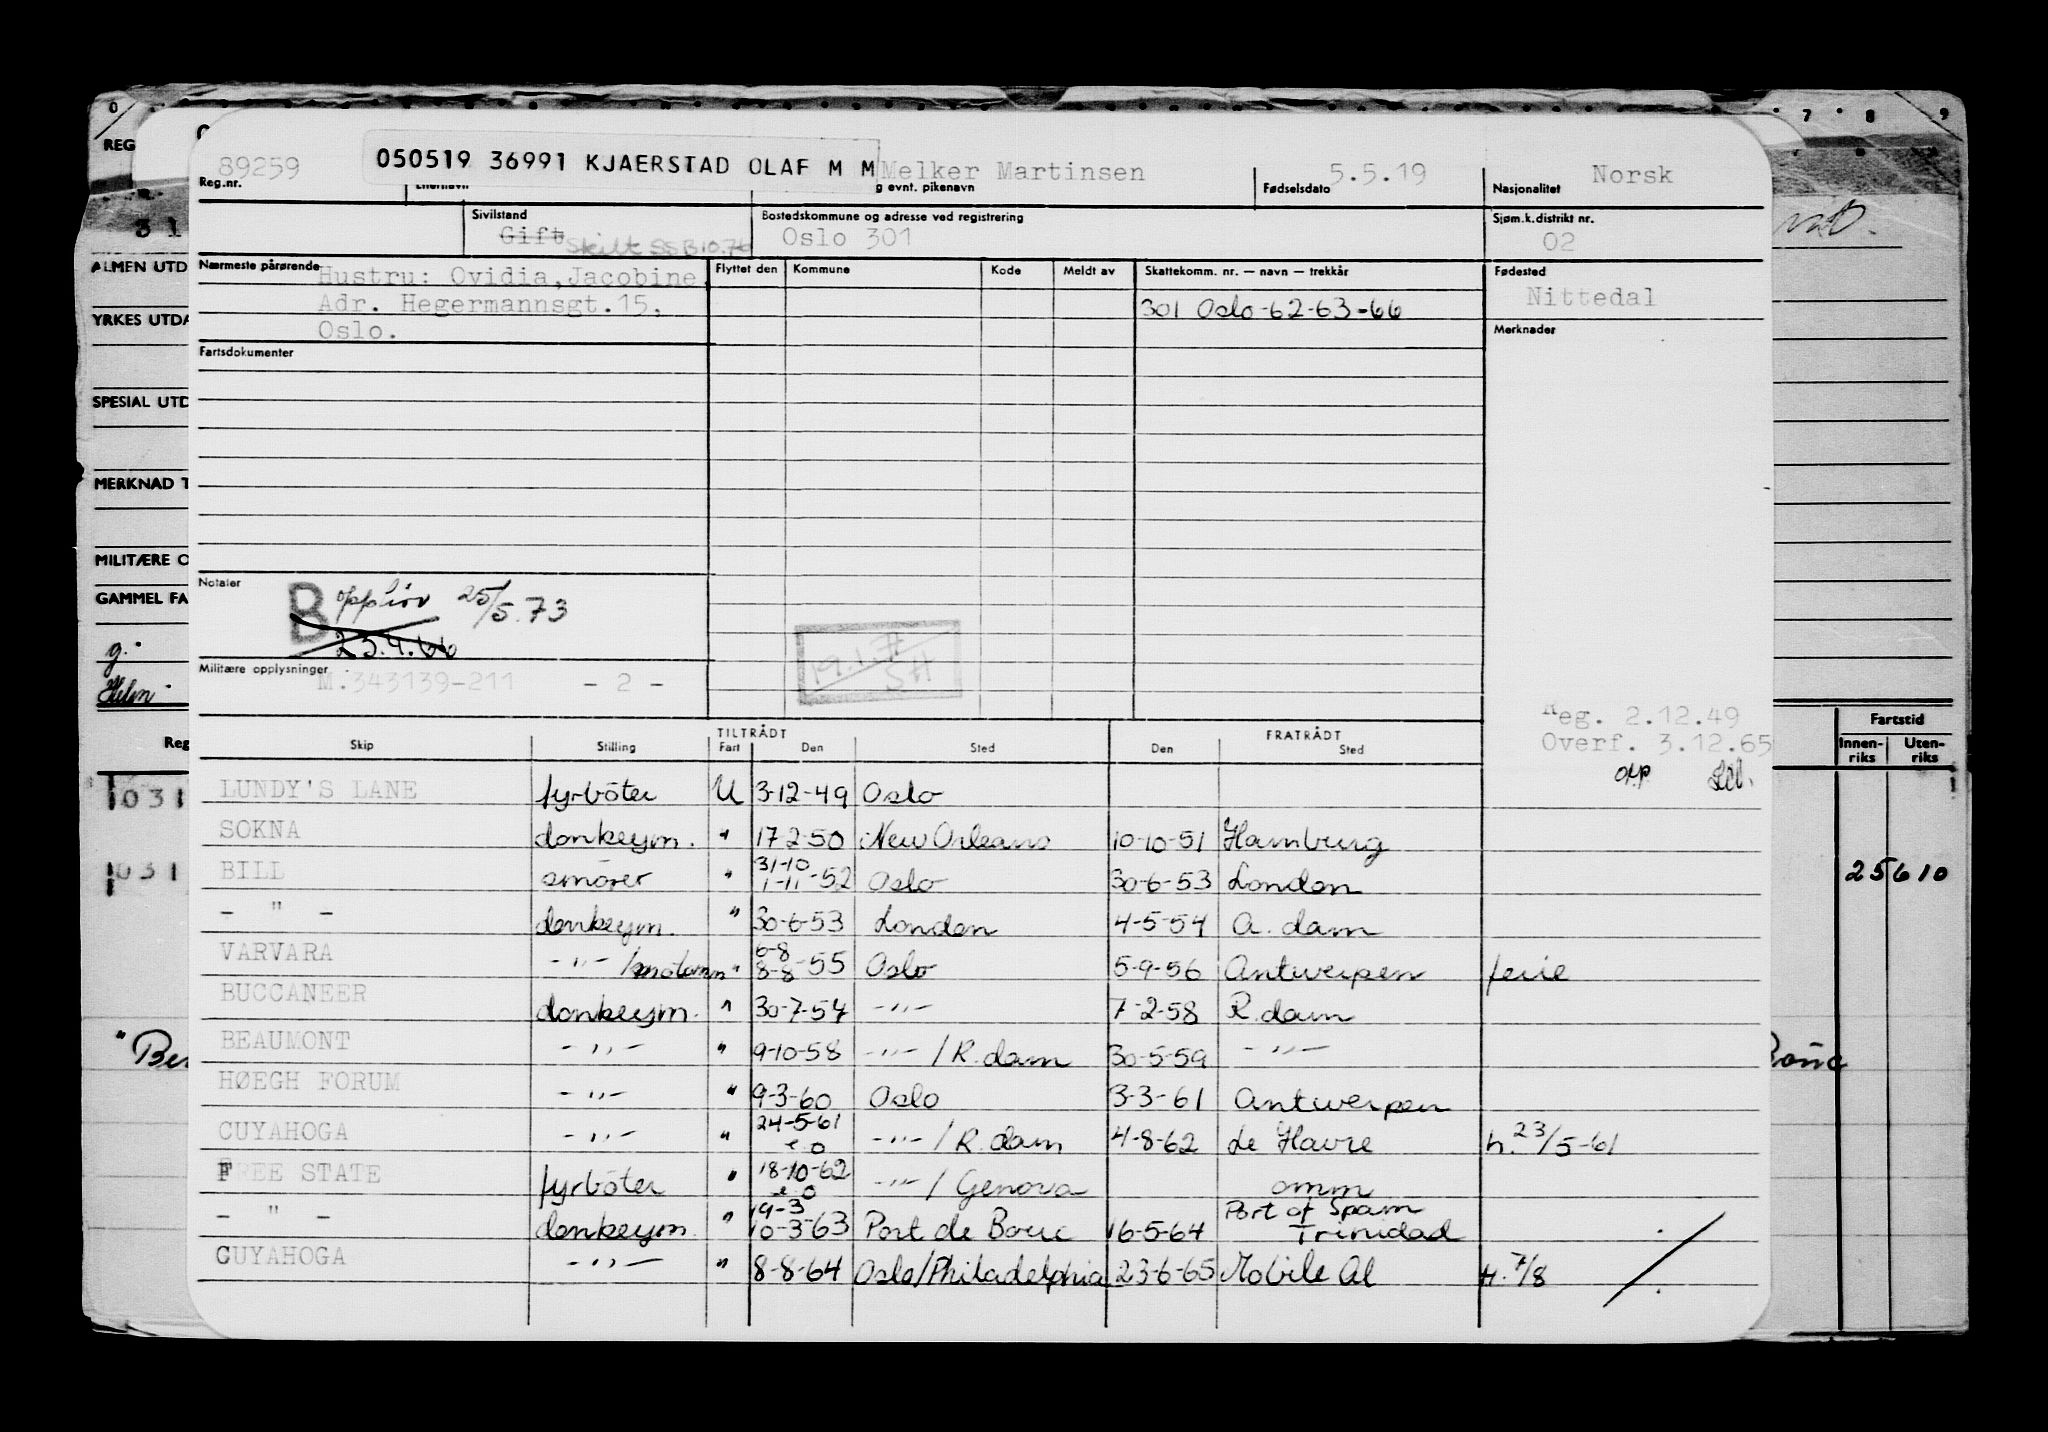 0 7 8 9
REG
89259 050519 36991 KJAERSTAD OLAF M M Melker Martinsen 5.5.19 Norsk
Reg.nr. g evnt. pikenavn Fødselsdato Nasjonalitet
Sivilstand Bostedskommune og adresse ved registrering Sjøm.k.distrikt nr.
31 Gift Skilt Oslo 301 02
ALMEN UTD
Nærmeste pårørende Flyttet den Kommune Kode Meldt av Skattekomm. nr. — navn — trekkår Fødested
Hustru: Ovidia,Jacobine,
Nittedal
Adr. Hegermannsgt.15, 301 Oslo-62-63-66
YRKES UTDA
Oslo. Merknader
Fartsdokumenter
SPESIAL UTD
MERKNAD T
MILITÆRE O
Notater
GAMMEL FA
B opphør 25/5.73
23.4.66
g.
Militære opplysninger M.343139-211 - 2 -
19.1.7
SH
Reg. 2.12.49
Overf. 3.12.65
opp
Fartstid
Innen-riks Uten-riks
TILTRÅDT FRATRÅDT
Reg Skip Stilling Fart Den Sted Den Sted
031 LUNDY'S LANE fyrböter U 3-12-49 Oslo
SOKNA donkeym. " 17-2-50 New Orleans 10-10-51 Hamburg
031 BILL smörer " 31-10 1-11-52 Oslo 30-6-53 London 25 610
- " - donkeym. " 30-6-53 London 4-5-54 A.dam
VARVARA -"- /motorm " 6-8 8-8-55 Oslo 5-9-56 Antwerpen ferie
BUCCANEER donkeym. " 30-7-54 -"- 7-2-58 R.dam
BEAUMONT -"- " 9-10-58 -"- / R.dam 30-5-59 -"-
HØEGH FORUM -"- " 9-3-60 Oslo 3-3-61 Antwerpen
CUYAHOGA -"- " 24-5-61 e o -"- / R.dam 4-8-62 Le Havre h. 23/5-61
FREE STATE fyrböter " 18-10-62 e o -"- / Genova omm
- " - donkeym. " 19-3 10-3-63 Port de Bouc 16-5-64 Port of Spain Trinidad
CUYAHOGA -"- " 8-8-64 Oslo/Philadelphia 23-6-65 Mobile Al H. 7/8